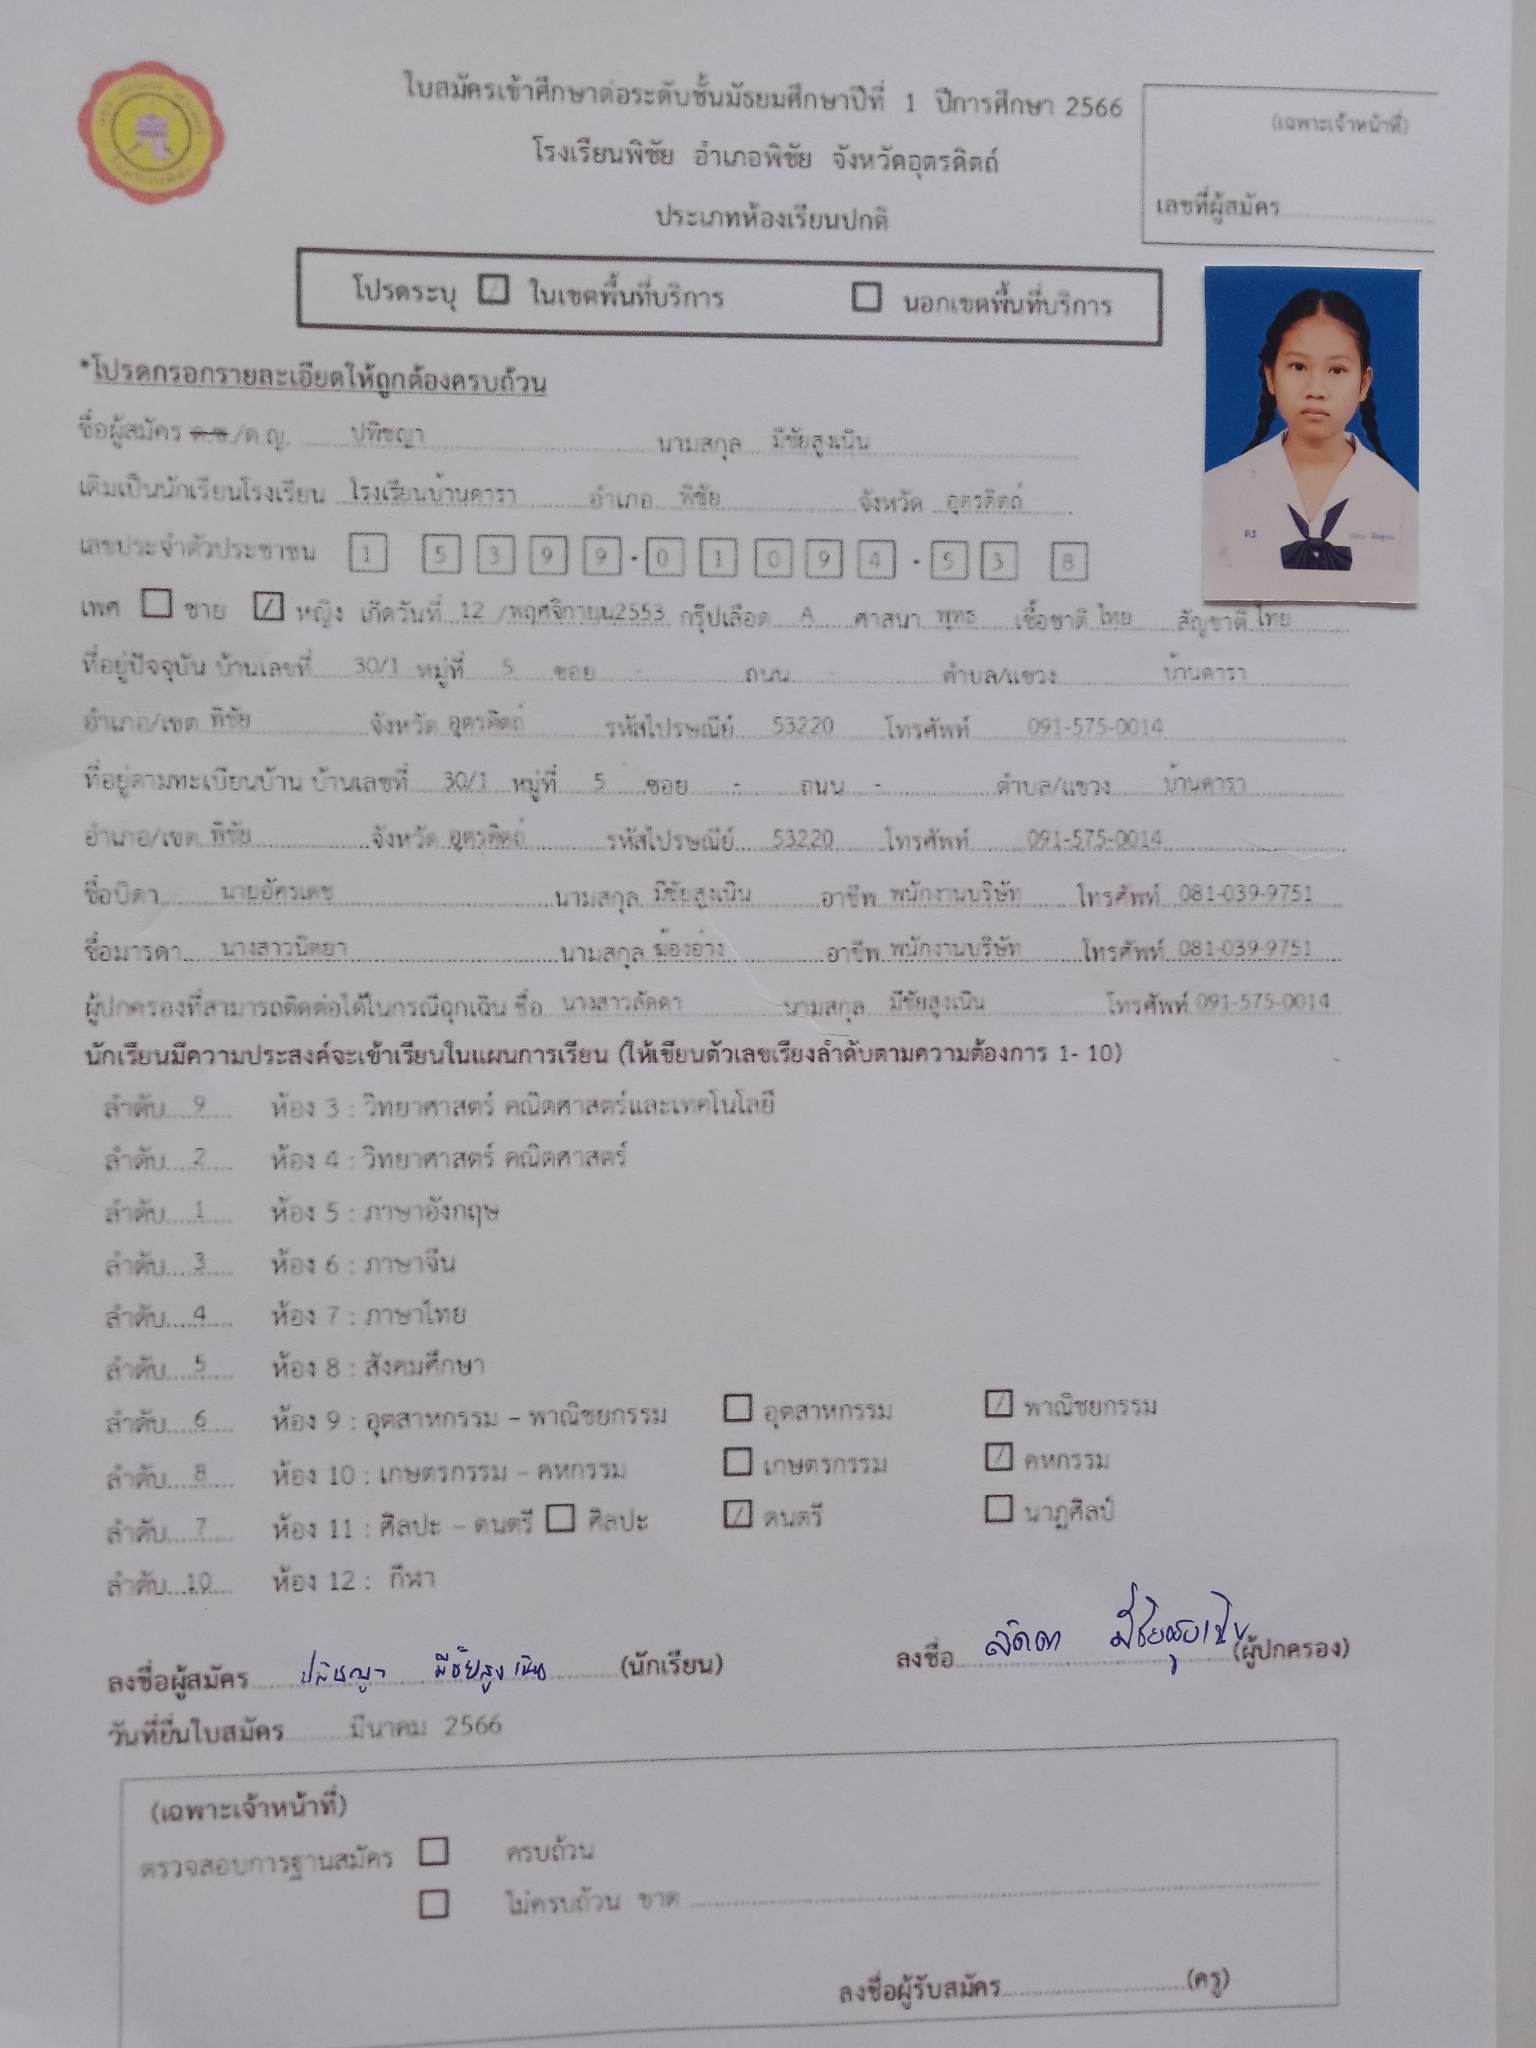 ใบสมัครเข้าศึกษาต่อระดับชั้นมัธยมศึกษาปีที่ 1 ปีการศึกษา 2566
(เฉพาะเจ้าหน้าที่)
โรงเรียนพิชัย อำเภอพิชัย จังหวัดอุตรดิตถ์
เลขที่ผู้สมัคร
ประเภทห้องเรียนปกติ
โปรดระบุ ในเขตพื้นที่บริการ นอกเขตพื้นที่บริการ
*โปรดกรอกรายละเอียดให้ถูกต้องครบถ้วน
ชื่อผู้สมัคร ด.ช./ด.ญ. ปพิชญา นามสกุล มีชัยสูงเนิน
เดิมเป็นนักเรียนโรงเรียน โรงเรียนบ้านดารา อำเภอ พิชัย จังหวัด อุตรดิตถ์
เลขประจำตัวประชาชน 1 5 3 9 9 - 0 1 0 9 4 - 5 3 8
เพศ ชาย / หญิง เกิดวันที่ 12 /พฤศจิกายน2553 กรุ๊ปเลือด A ศาสนา พุทธ เชื้อชาติ ไทย สัญชาติ ไทย
ที่อยู่ปัจจุบัน บ้านเลขที่ 30/1 หมู่ที่ 5 ซอย - ถนน - ตำบล/แขวง บ้านดารา
อำเภอ/เขต พิชัย จังหวัด อุตรดิตถ์ รหัสไปรษณีย์ 53220 โทรศัพท์ 091-575-0014
ที่อยู่ตามทะเบียนบ้าน บ้านเลขที่ 30/1 หมู่ที่ 5 ซอย - ถนน - ตำบล/แขวง บ้านดารา
อำเภอ/เขต พิชัย จังหวัด อุตรดิตถ์ รหัสไปรษณีย์ 53220 โทรศัพท์ 091-575-0014
ชื่อบิดา นายอัครเดช นามสกุล มีชัยสูงเนิน อาชีพ พนักงานบริษัท โทรศัพท์ 081-039-9751
ชื่อมารดา นางสาวนิตยา นามสกุล ม้องอ่าง อาชีพ พนักงานบริษัท โทรศัพท์ 081-039-9751
ผู้ปกครองที่สามารถติดต่อได้ในกรณีฉุกเฉิน ชื่อ นางสาวลัดดา นามสกุล มีชัยสูงเนิน โทรศัพท์ 091-575-0014
นักเรียนมีความประสงค์จะเข้าเรียนในแผนการเรียน (ให้เขียนตัวเลขเรียงลำดับตามความต้องการ 1- 10)
ลำดับ 9 ห้อง 3 : วิทยาศาสตร์ คณิตศาสตร์และเทคโนโลยี
ลำดับ 2 ห้อง 4 : วิทยาศาสตร์ คณิตศาสตร์
ลำดับ 1 ห้อง 5 : ภาษาอังกฤษ
ลำดับ 3 ห้อง 6 : ภาษาจีน
ลำดับ 4 ห้อง 7 : ภาษาไทย
ลำดับ 5 ห้อง 8 : สังคมศึกษา
ลำดับ 6 ห้อง 9 : อุตสาหกรรม – พาณิชยกรรม อุตสาหกรรม / พาณิชยกรรม
ลำดับ 8 ห้อง 10 : เกษตรกรรม – คหกรรม เกษตรกรรม / คหกรรม
ลำดับ 7 ห้อง 11 : ศิลปะ – ดนตรี ศิลปะ / ดนตรี นาฏศิลป์
ลำดับ 10 ห้อง 12 : กีฬา
ลงชื่อผู้สมัคร ปพิชญา มีชัยสูงเนิน (นักเรียน) ลงชื่อ ลัดดา มีชัยสูงเนิน (ผู้ปกครอง)
วันที่ยื่นใบสมัคร มีนาคม 2566
(เฉพาะเจ้าหน้าที่)
ตรวจสอบการฐานสมัคร ครบถ้วน
ไม่ครบถ้วน ขาด
ลงชื่อผู้รับสมัคร (ครู)